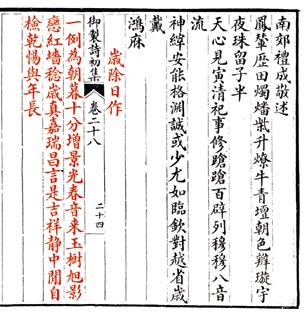 南郊禮成敬述
鳳輦歷田燭燔柴升燎牛青壇朝色辨璇宇
夜珠留子半
天心見寅清祀事修蹌蹌百辟列穆穆八音
流
神縡安能格淵誠或少尤如臨欽對越省歲
戴
鴻庥
歲除日作
御製詩初集 卷二十八 二十四
一例為朝暮十分增景光春音來玉樹旭影
戀紅墻稔歲真嘉瑞昌言是吉祥靜中閒自
檢乾惕與年長